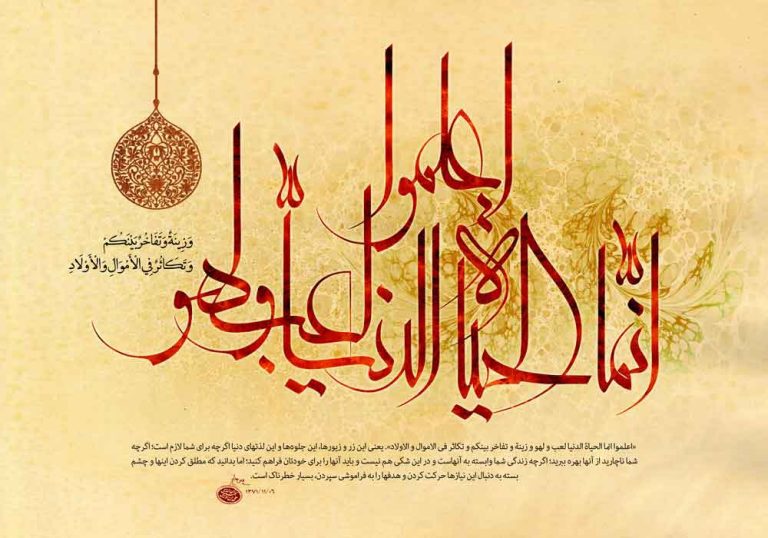 اعلموا
انّما الحیاة الدنیا لعب و لهو
وَزِينَةٌ وَتَفَاخُرٌ بَيْنَكُمْ
وَتَكَاثُرٌ فِي الْأَمْوَالِ وَالْأَوْلَادِ
«اعلموا انما الحیاة الدنیا لعب و لهو و زینة و تفاخر بینکم و تکاثر فی الاموال و الاولاد». یعنی این زر و زیورها، این جلوه‌ها و این لذتهای دنیا اگرچه برای شما لازم است؛ اگرچه
شما ناچارید از آنها بهره ببرید؛ اگرچه زندگی شما وابسته به آنهاست و در این شکی هم نیست و باید آنها را برای خودتان فراهم کنید؛ اما بدانید که مطلق کردن اینها و چشم
بسته به دنبال این نیازها حرکت کردن و هدفها را به فراموشی سپردن، بسیار خطرناک است.
۱۳۷۱/۱۱/۰۶